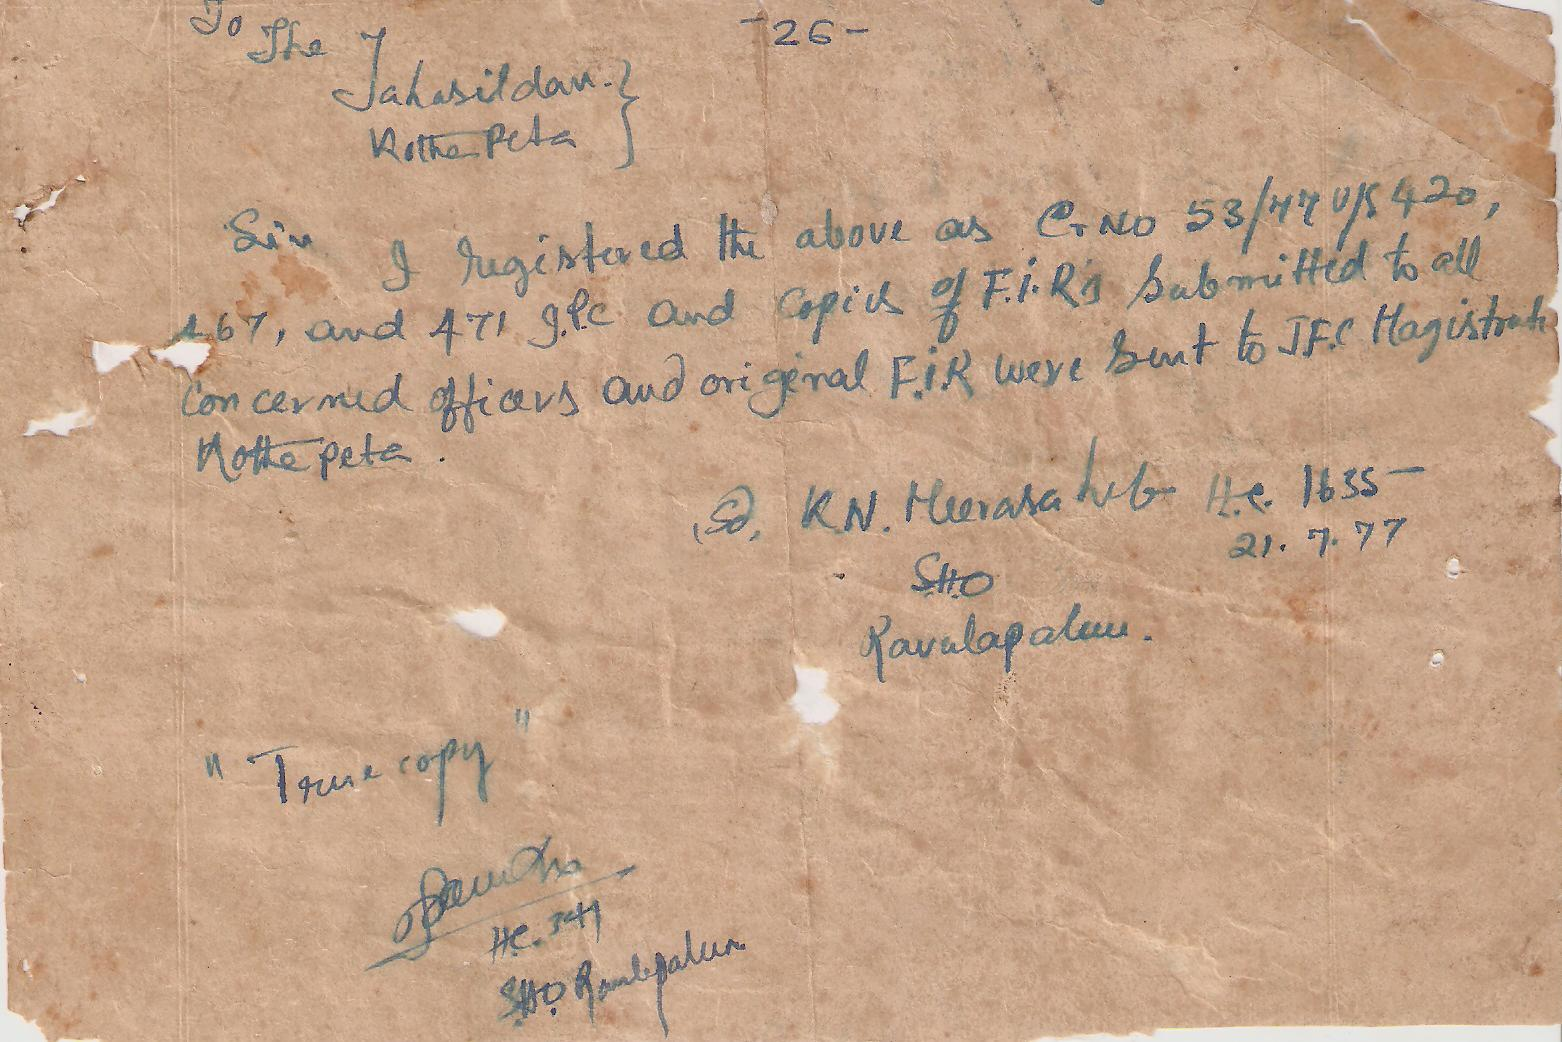 -26-
To
The
Tahasildar. }
Kothapeta }
Sir
I registered the above as Cr No 53/77 u/s 420,
467, and 471 I.P.C and copies of F.I.R's submitted to all
concerned officers and original F.I.R were sent to J.F.C Magistrate
Kothapeta.
Sd, K.N. Meerasaheb H.C. 1635
21.7.77
S.H.O
Ravulapalem.
"True copy"
H.C. 341
S.H.O. Ravulapalem